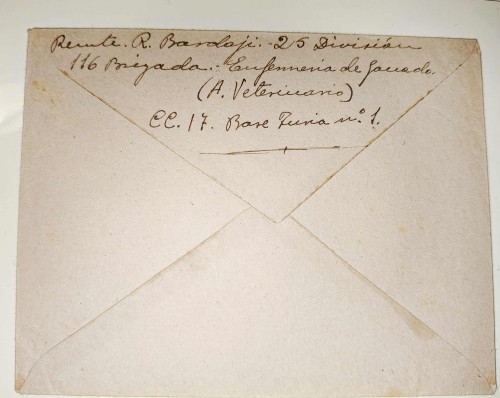 Remite. R. Bardaji. - 25 División
116 Brigada. - Enfermeria de Ganado.
(A. Veterinario)
CC. 17. Base Turia nº. 1.